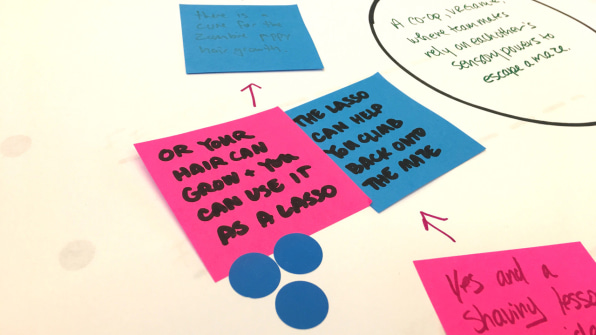 there is a
cure for the
zombie pppy
hair growth.
A co-op, version,
where team mates
rely on each other's
sensory powers to
escape a maze.
OR YOUR
HAIR CAN
GROW + YOU
CAN USE IT
AS A LASSO
THE LASSO
CAN HELP
YOU CLIMB
BACK ONTO
THE MATE
Yes and a
shaving lesso